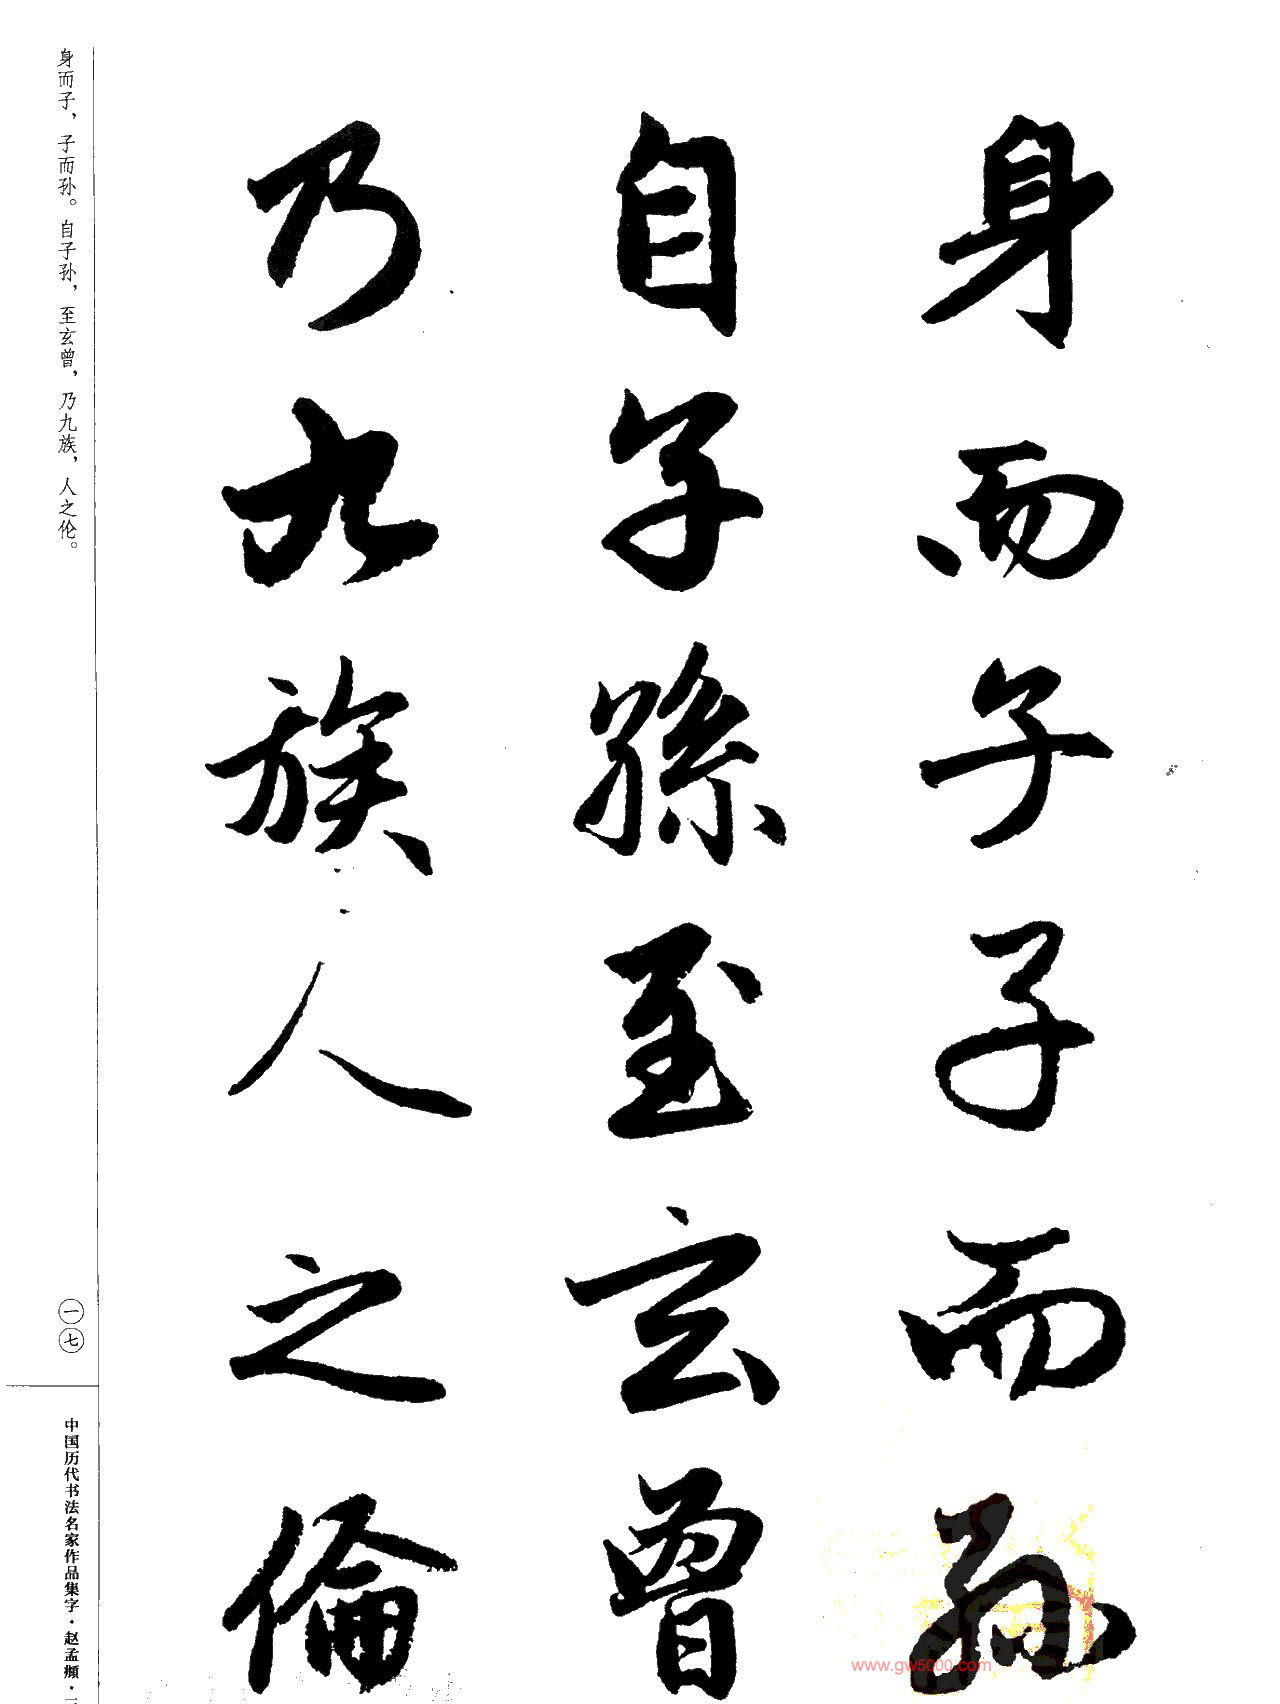 身而子子而孫
自子孫至玄曾
乃九族人之倫
身而子，子而孙。自子孙，至玄曾，乃九族，人之伦。
一七
中国历代书法名家作品集字·赵孟頫·
www.gw5000.com